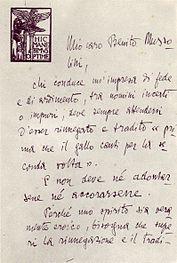 HIC
MANE
BIMVS
OPTIME
Mio caro Benito Musso
lini,
chi conduce un'impresa di fede
e di ardimento, tra uomini incerti
o impuri, deve sempre attendersi
d'esser rinnegato e tradito "pri
ma che il gallo canti per la se
conda volta".
E non deve né adontar
sene né accorarsene.
Perché uno spirito sia vera
mente eroico, bisogna che supe
ri la rinnegazione e il tradi-